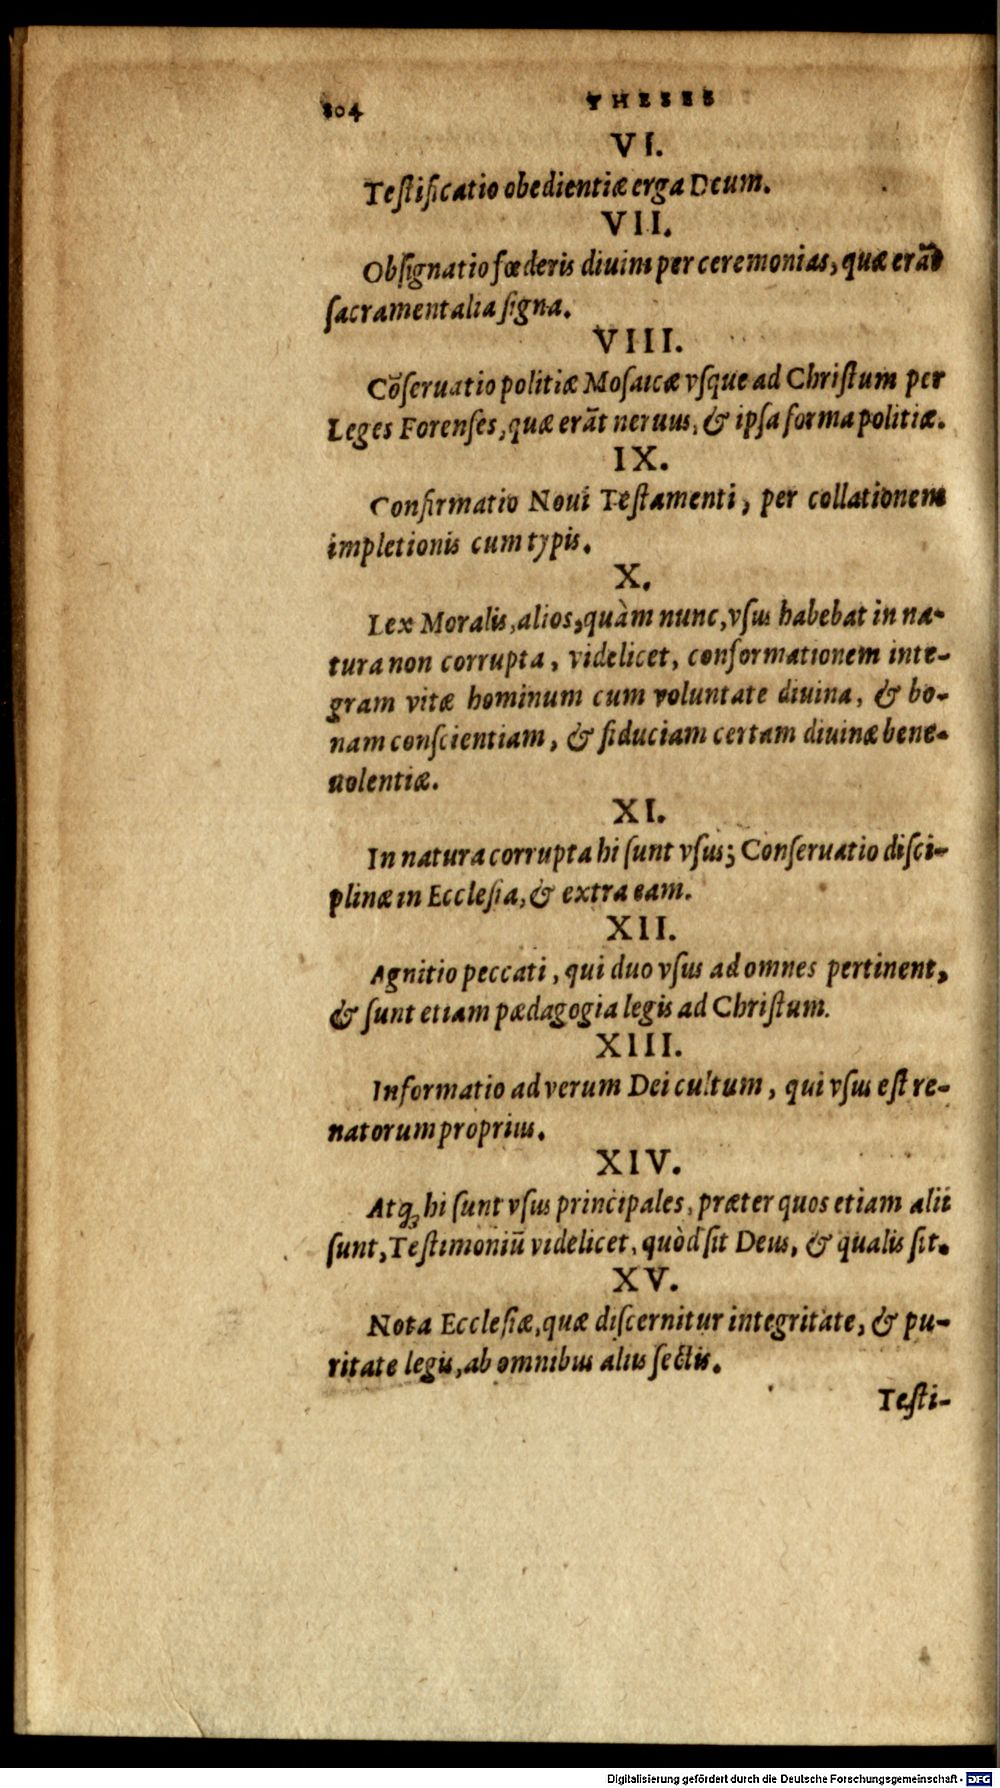 804 THESES
VI.
Teſtificatio obedientiæ erga Deum.
VII.
Obſignatio fœderis diuini per ceremonias, quæ erãt
ſacramentalia ſigna.
VIII.
Cõſeruatio politiæ Moſaicæ vſque ad Chriſtum per
Leges Forenſes, quæ erãt neruus, & ipſa forma politiæ.
IX.
Confirmatio Noui Teſtamenti, per collationem
impletionis cum typis.
X.
Lex Moralis, alios, quàm nunc, vſus habebat in na-
tura non corrupta, videlicet, conformationem inte-
gram vitæ hominum cum voluntate diuina, & bo-
nam conſcientiam, & fiduciam certam diuinæ bene-
uolentiæ.
XI.
In natura corrupta hi ſunt vſus; Conſeruatio diſci-
plinæ in Eccleſia, & extra eam.
XII.
Agnitio peccati, qui duo vſus ad omnes pertinent,
& ſunt etiam pædagogia legis ad Chriſtum.
XIII.
Informatio ad verum Dei cultum, qui vſus eſt re-
natorum proprius.
XIV.
Atq; hi ſunt vſus principales, præter quos etiam alii
ſunt, Teſtimoniũ videlicet, quòd ſit Deus, & qualis ſit.
XV.
Nota Eccleſiæ, quæ diſcernitur integritate, & pu-
ritate legis, ab omnibus aliis ſectis.
Teſti-
Digitalisierung gefördert durch die Deutsche Forschungsgemeinschaft - DFG